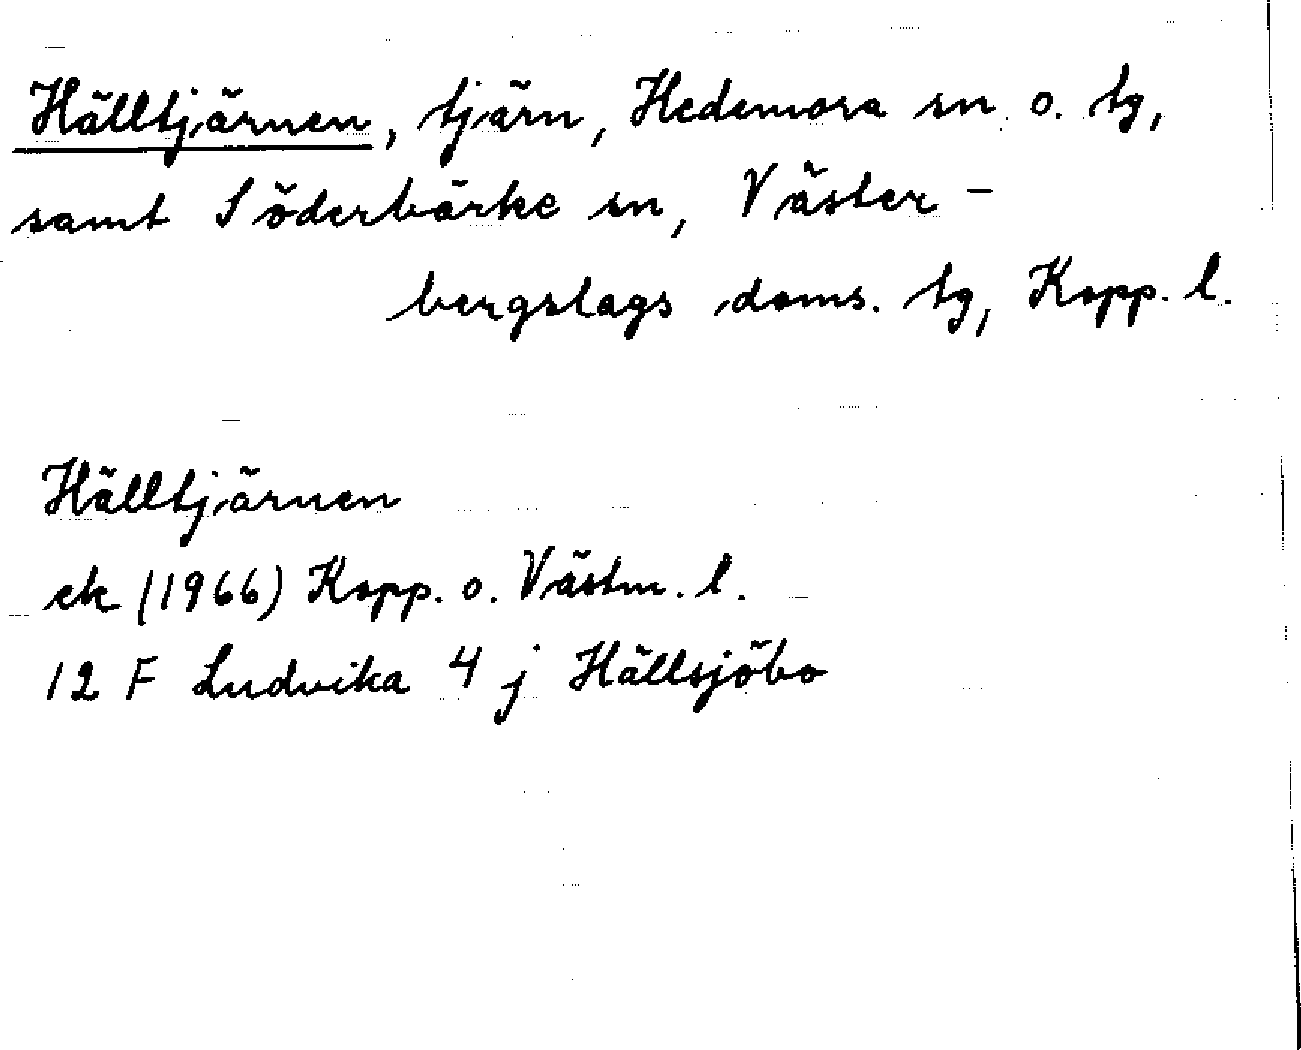 Hälltjärnen, tjärn, Hedemora sn o. tg,
samt Söderbärke sn, Väster-
bergslags doms. tg, Kopp. l.
Hälltjärnen
ek (1966) Kopp. o. Västm. l.
12 F Ludvika 4 j Hällsjöbo